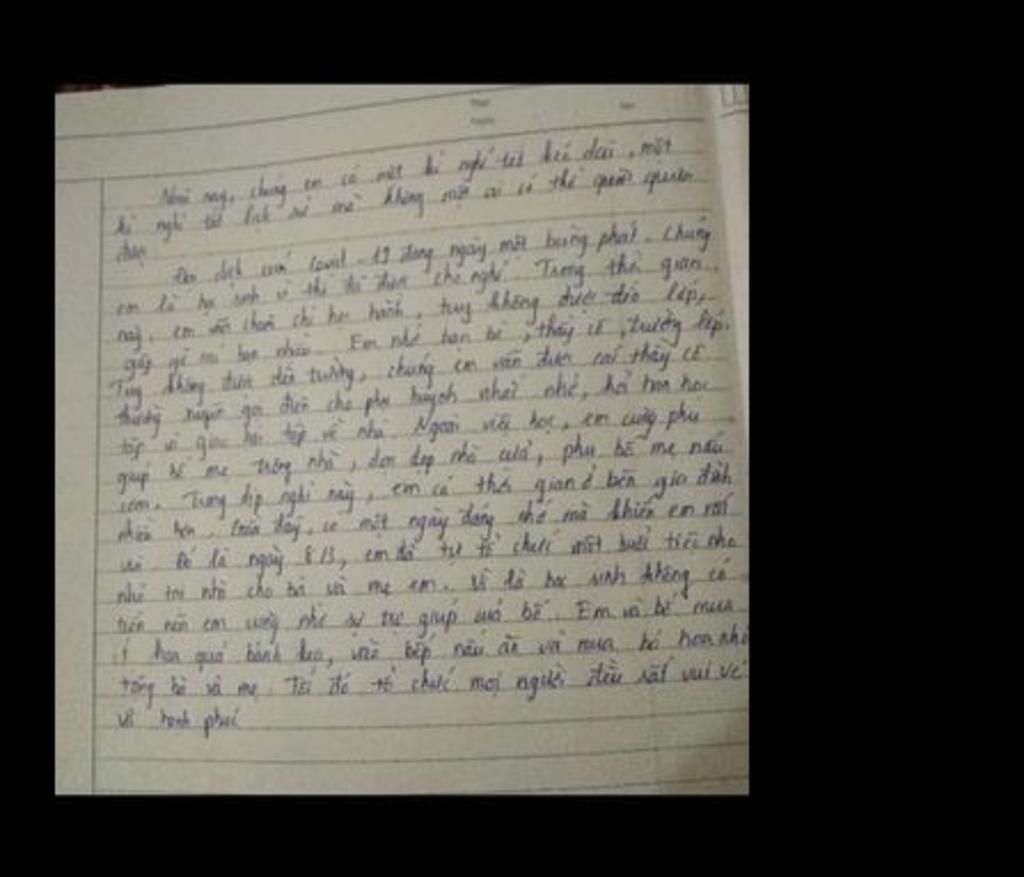 Năm nay, chúng em có một kì nghỉ tết kéo dài, một
kì nghỉ tết lịch sử mà không một ai có thể quên
được
Đại dịch Covid-19 đang ngày một bùng phát. Chúng
em là học sinh vì thế đã được cho nghỉ. Trong thời gian
này, em vẫn chăm chỉ học hành, tuy không được đến lớp,
gặp gỡ bạn nhiều. Em nhớ bạn bè, thầy cô, trường lớp.
Tuy không được đến trường, chúng em vẫn được các thầy cô
thường xuyên gọi điện cho phụ huynh nhắc nhở, hỏi han học
tập và giao bài tập về nhà. Ngoài việc học, em cũng phụ
giúp bố mẹ trông nhà, dọn dẹp nhà cửa, phụ bố mẹ nấu
cơm. Trong dịp nghỉ này, em có thời gian ở bên gia đình
nhiều hơn. Gần đây, có một ngày đáng nhớ mà khiến em rất
vui. Đó là ngày 8/3, em đã tự tổ chức một buổi tiệc nho
nhỏ tại nhà cho bà và mẹ em. Vì là học sinh không có
tiền nên em cũng nhờ sự trợ giúp của bố. Em và bố mua
í hoa quả bánh kẹo, vào bếp nấu ăn và mua bó hoa nhỏ
tặng bà và mẹ. Tối đó tổ chức mọi người đều rất vui vẻ
và hạnh phúc